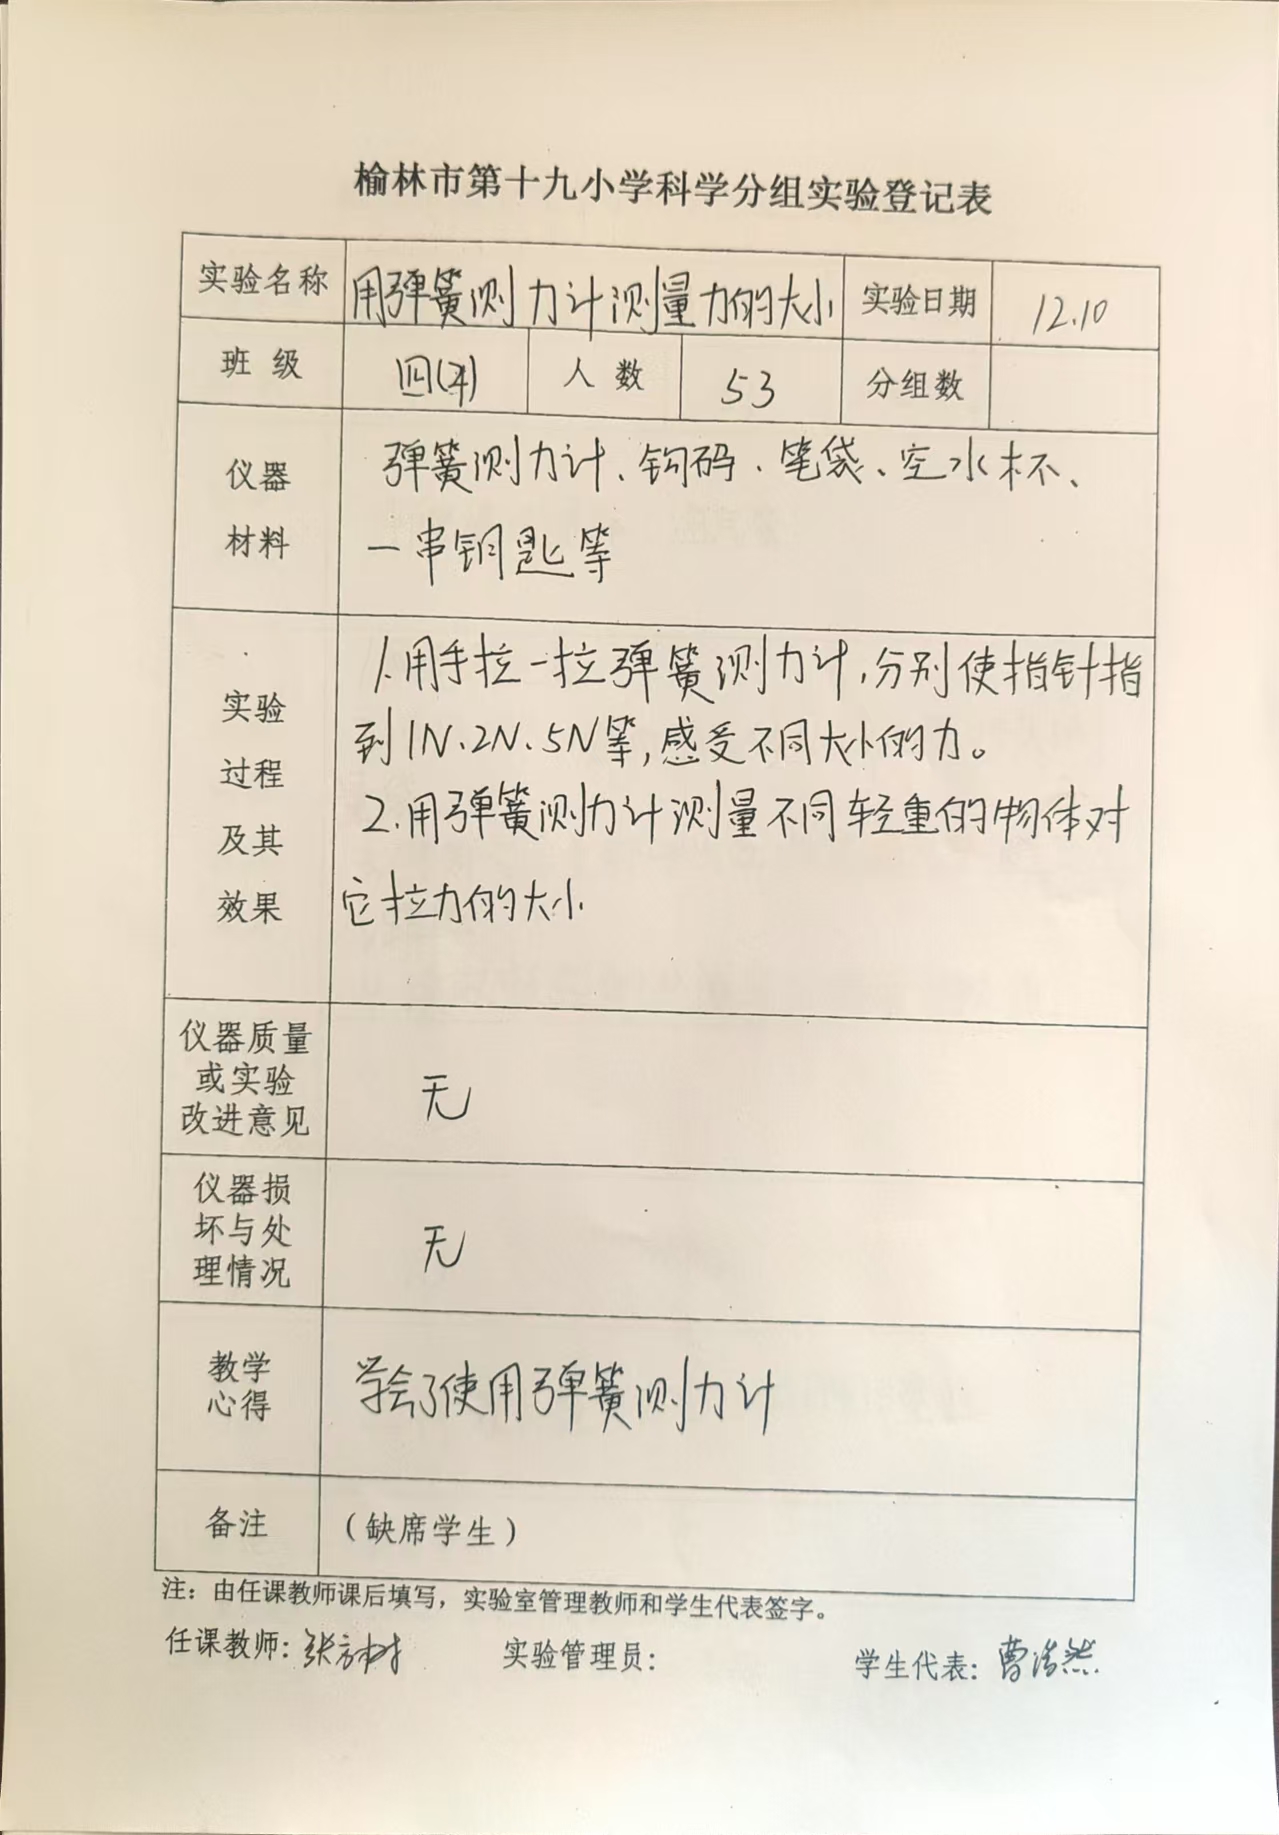 榆林市第十九小学科学分组实验登记表
实验名称 用弹簧测力计测量力的大小 实验日期 12.10
班 级 四 人 数 53 分组数
仪器
材料
弹簧测力计、钩码、笔袋、空水杯、
一串钥匙等
实验
过程
及其
效果
1.用手拉一拉弹簧测力计,分别使指针指
到1N、2N、5N等,感受不同大小的力。
2.用弹簧测力计测量不同轻重的物体对
它拉力的大小
仪器质量
或实验
改进意见
无
仪器损
坏与处
理情况
无
教学
心得
学会了使用弹簧测力计
备注 (缺席学生)
注：由任课教师课后填写，实验室管理教师和学生代表签字。
任课教师: 实验管理员: 学生代表: 曹浩然